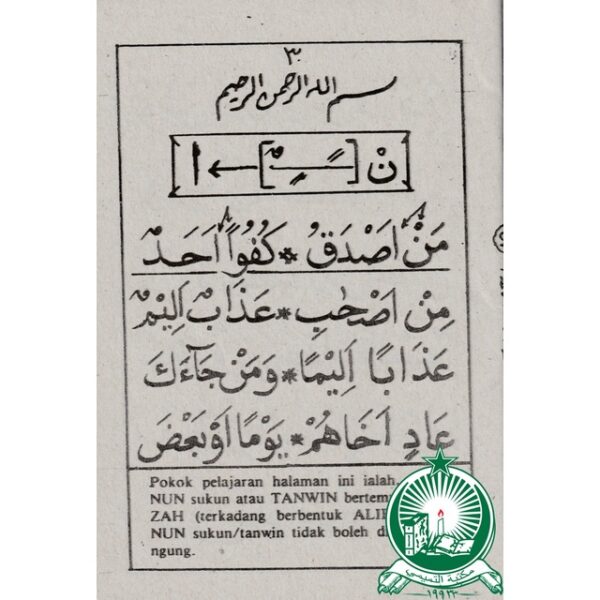 ٣
بسم الله الرحمن الرحيم
نْ [ ـًـٍـٌ ] ← ا
مَنْ اَصْدَقُ * كُفُوًا اَحَدٌ
مِنْ اَصْحٰبِ * عَذَابٌ اَلِيْمٌ
عَذَابًا اَلِيْمًا * وَمَنْ جَآءَكَ
عَادٍ اَخَاهُمْ * يَوْمًا اَوْ بَعْضَ
Pokok pelajaran halaman ini ialah,
NUN sukun atau TANWIN bertem
ZAH (terkadang berbentuk ALI
NUN sukun/tanwin tidak boleh d
ngung.
مكتبة التيسيي
١٩٩٣